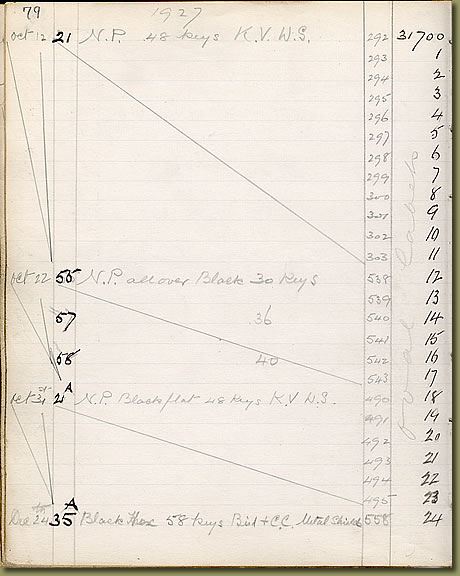 79 1927
Oct 12 21 N.P. 48 Keys K.V.W.S. 292 31700
293 1
294 2
295 3
296 4
297 5
298 6
299 7
300 8
301 9
302 10
303 11
Oct 22 55 N.P. all over Black 30 Keys 538 12
539 13
57 36 540 14
541 15
58 40 542 16
543 17
Oct 31st 21A N.P. Black flat 48 Keys K.V.W.S. 490 18
491 19
492 20
493 21
494 22
495 23
Dec 24th 35A Black 58 Keys + C.C. Metal 558 24
oval labels